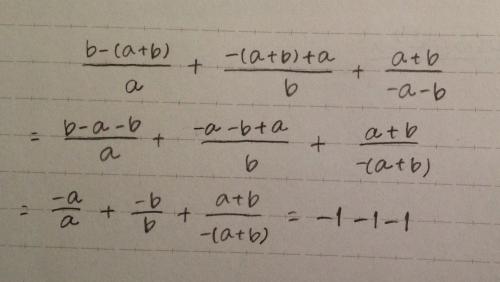 (b-(a+b))/a + (-(a+b)+a)/b + (a+b)/(-a-b)
= (b-a-b)/a + (-a-b+a)/b + (a+b)/(-(a+b))
= (-a)/a + (-b)/b + (a+b)/(-(a+b)) = -1-1-1